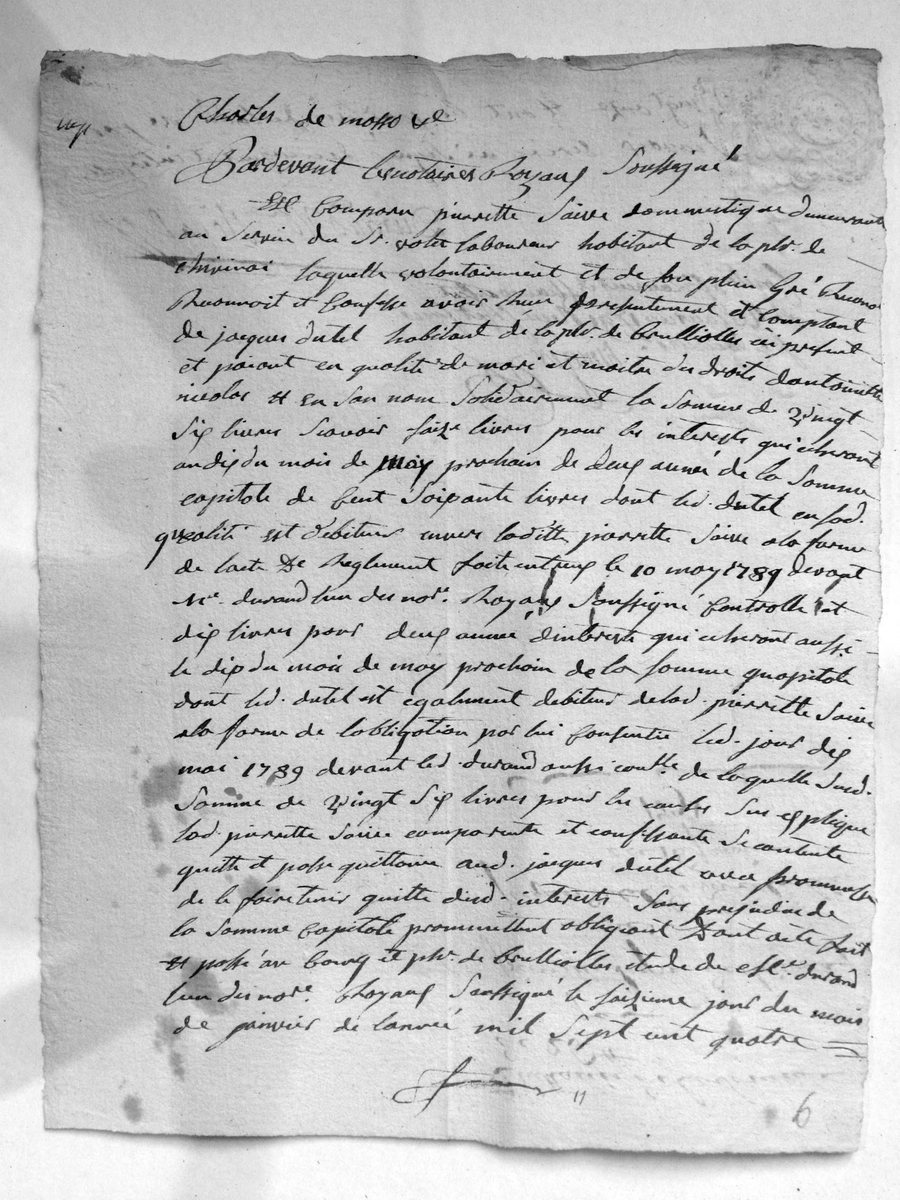 Charles de masso
Pardevant les notaires Royaux Soussigné
Est Comparu pierrette Saive domestique demeurante
au Servin du Sr. laboureur habitant de la psse. de
chivinai laquelle volontairement et de son plein Gré
Reconnoit et Confesse avoir Reçeu presentement et Comptant
de jacques dutel habitant de la psse. de brulliolles ici present
et paiant en qualité de mari et maitre des droits dantoinette
nicolas et en Son nom Solidairement la Somme de vingt
Six livres Scavoir Saize livres pour les interests qui echeront
au dix du mois de may prochain de deux année de la Somme
capitale de Cent Soixante livres dont led. dutel en sad.
qualité est débiteur envers laditte pierrette Saive a la forme
de lacte De Reglement fait entreux le 10 may 1789 devant
Me. durand lun des nore. Royaux Soussigné Controllé et
dix livres pour deux année dinterests qui echeront aussi
le dix du mois de may prochain de la Somme quapitale
dont led. dutel est egalement debiteur de lad. pierrette Saive
a la forme de lobligation par lui Consentie led. jour dix
mai 1789 devant led. durand aussi contlé. de laquelle susd.
Somme de vingt Six livres pour les causes Sus expliqué
lad. pierrette Saive comparente et confessante Se contente
quitte et passe quittance aud. jacques dutel avec promesse
de le faire tenir quitte desd. interests Sans prejudice de
la Somme Capitale promettent obligeant Dont acte fait
et passé au bourg et psse. de brulliolles étude de Me. durand
lun des nore. Royaux Soussigné le Saizieme jour du mois
de janvier de lanneé mil Sept cent quatre
6